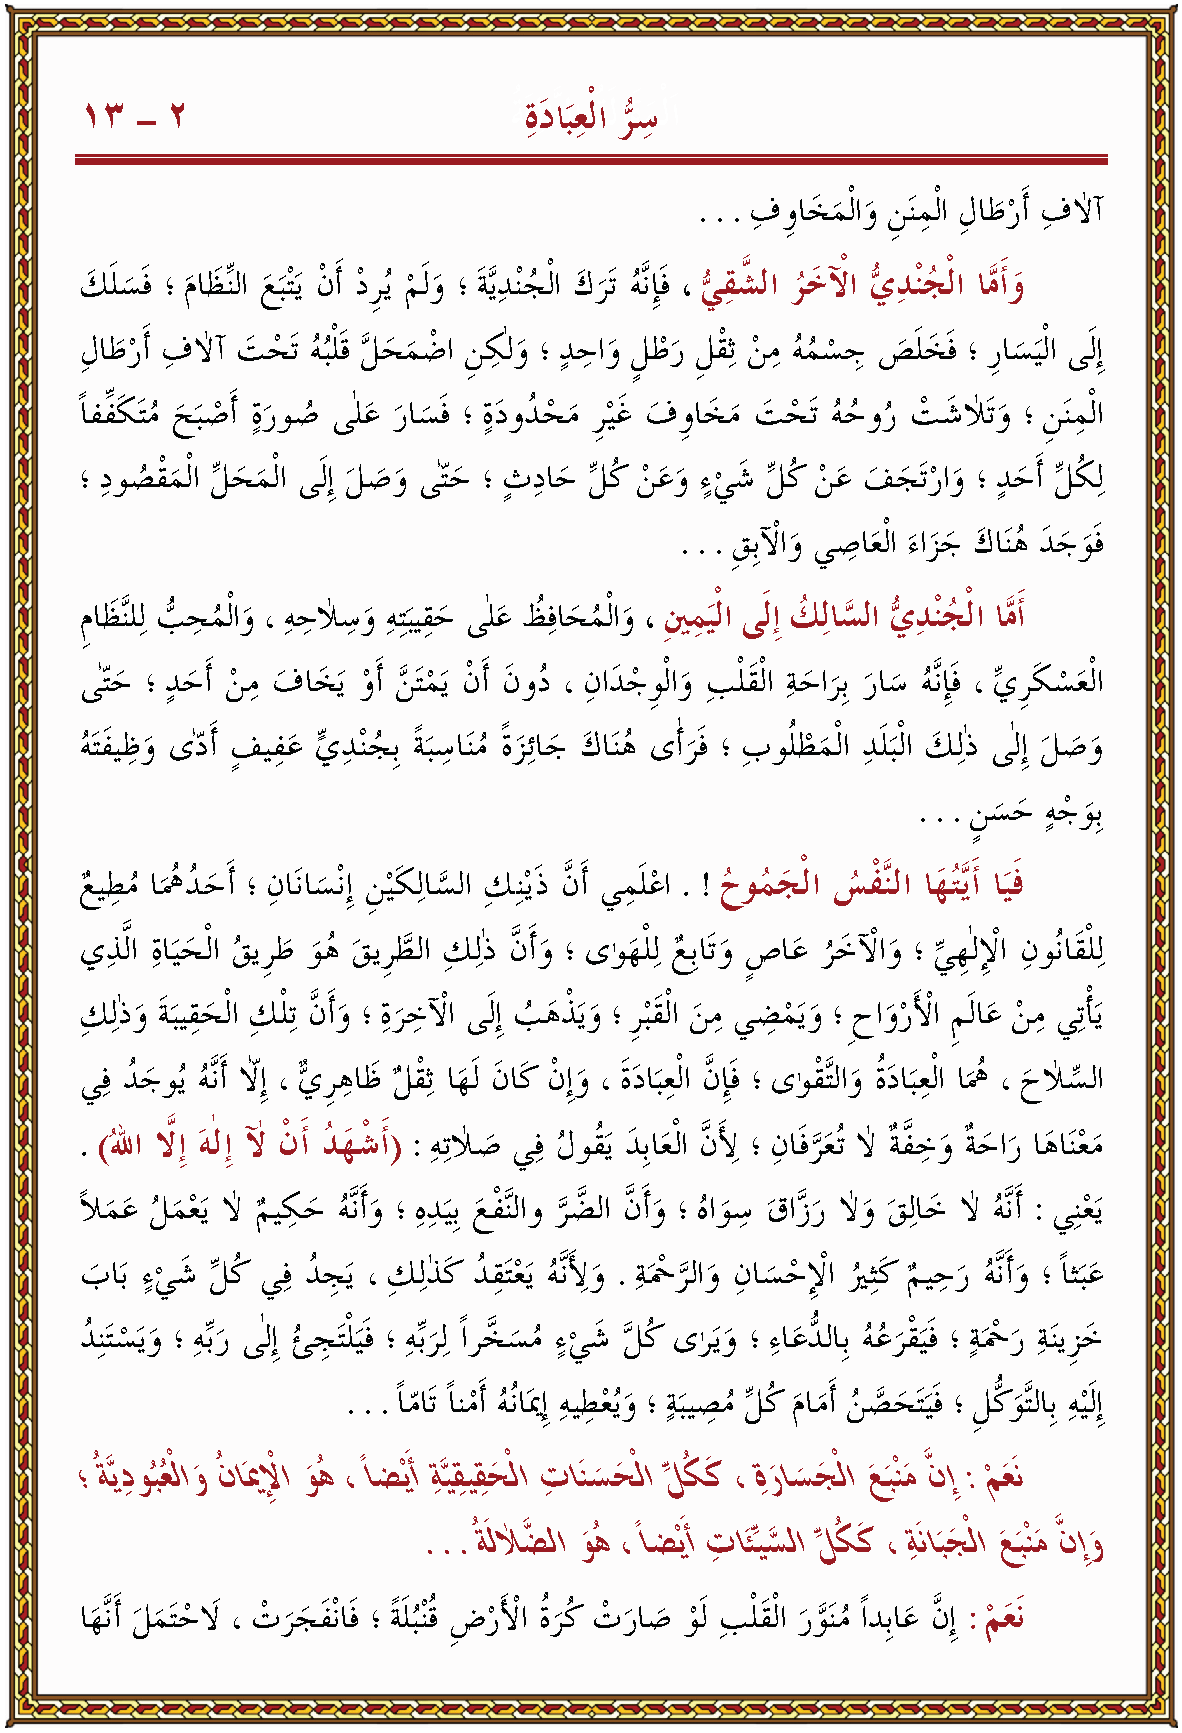 سِرُّ الْعِبَادَةِ ٢ – ١٣
آلَافِ أَرْطَالِ الْمِنَنِ وَالْمَخَاوِفِ . . .
وَأَمَّا الْجُنْدِيُّ الْآخَرُ الشَّقِيُّ ، فَإِنَّهُ تَرَكَ الْجُنْدِيَّةَ ؛ وَلَمْ يُرِدْ أَنْ يَتْبَعَ النِّظَامَ ؛ فَسَلَكَ
إِلَى الْيَسَارِ ؛ فَخَلَصَ جِسْمُهُ مِنْ ثِقْلِ رَطْلٍ وَاحِدٍ ؛ وَلٰكِنِ اضْمَحَلَّ قَلْبُهُ تَحْتَ آلَافِ أَرْطَالِ
الْمِنَنِ ؛ وَتَلَاشَتْ رُوحُهُ تَحْتَ مَخَاوِفَ غَيْرِ مَحْدُودَةٍ ؛ فَسَارَ عَلٰى صُورَةٍ أَصْبَحَ مُتَكَفِّفاً
لِكُلِّ أَحَدٍ ؛ وَارْتَجَفَ عَنْ كُلِّ شَيْءٍ وَعَنْ كُلِّ حَادِثٍ ؛ حَتّٰى وَصَلَ إِلَى الْمَحَلِّ الْمَقْصُودِ ؛
فَوَجَدَ هُنَاكَ جَزَاءَ الْعَاصِي وَالْآبِقِ . . .
أَمَّا الْجُنْدِيُّ السَّالِكُ إِلَى الْيَمِينِ ، وَالْمُحَافِظُ عَلٰى حَقِيبَتِهِ وَسِلَاحِهِ ، وَالْمُحِبُّ لِلنَّظَامِ
الْعَسْكَرِيِّ ، فَإِنَّهُ سَارَ بِرَاحَةِ الْقَلْبِ وَالْوِجْدَانِ ، دُونَ أَنْ يَمْتَنَّ أَوْ يَخَافَ مِنْ أَحَدٍ ؛ حَتّٰى
وَصَلَ إِلٰى ذٰلِكَ الْبَلَدِ الْمَطْلُوبِ ؛ فَرَأٰى هُنَاكَ جَائِزَةً مُنَاسِبَةً بِجُنْدِيٍّ عَفِيفٍ أَدّٰى وَظِيفَتَهُ
بِوَجْهٍ حَسَنٍ . . .
فَيَا أَيَّتُهَا النَّفْسُ الْجَمُوحُ ! . اعْلَمِي أَنَّ ذَيْنِكِ السَّالِكَيْنِ إِنْسَانَانِ ؛ أَحَدُهُمَا مُطِيعٌ
لِلْقَانُونِ الْإِلٰهِيِّ ؛ وَالْآخَرُ عَاصٍ وَتَابِعٌ لِلْهَوٰى ؛ وَأَنَّ ذٰلِكِ الطَّرِيقَ هُوَ طَرِيقُ الْحَيَاةِ الَّذِي
يَأْتِي مِنْ عَالَمِ الْأَرْوَاحِ ؛ وَيَمْضِي مِنَ الْقَبْرِ ؛ وَيَذْهَبُ إِلَى الْآخِرَةِ ؛ وَأَنَّ تِلْكِ الْحَقِيبَةَ وَذٰلِكِ
السِّلَاحَ ، هُمَا الْعِبَادَةُ وَالتَّقْوٰى ؛ فَإِنَّ الْعِبَادَةَ ، وَإِنْ كَانَ لَهَا ثِقْلٌ ظَاهِرِيٌّ ، إِلَّا أَنَّهُ يُوجَدُ فِي
مَعْنَاهَا رَاحَةٌ وَخِفَّةٌ لَا تُعَرَّفَانِ ؛ لِأَنَّ الْعَابِدَ يَقُولُ فِي صَلَاتِهِ : (أَشْهَدُ أَنْ لَآ إِلٰهَ إِلَّا اللهُ) .
يَعْنِي : أَنَّهُ لَا خَالِقَ وَلَا رَزَّاقَ سِوَاهُ ؛ وَأَنَّ الضَّرَّ وَالنَّفْعَ بِيَدِهِ ؛ وَأَنَّهُ حَكِيمٌ لَا يَعْمَلُ عَمَلاً
عَبَثاً ؛ وَأَنَّهُ رَحِيمٌ كَثِيرُ الْإِحْسَانِ وَالرَّحْمَةِ . وَلِأَنَّهُ يَعْتَقِدُ كَذٰلِكِ ، يَجِدُ فِي كُلِّ شَيْءٍ بَابَ
خَزِينَةِ رَحْمَةٍ ؛ فَيَقْرَعُهُ بِالدُّعَاءِ ؛ وَيَرٰى كُلَّ شَيْءٍ مُسَخَّراً لِرَبِّهِ ؛ فَيَلْتَجِئُ إِلٰى رَبِّهِ ؛ وَيَسْتَنِدُ
إِلَيْهِ بِالتَّوَكُّلِ ؛ فَيَتَحَصَّنُ أَمَامَ كُلِّ مُصِيبَةٍ ؛ وَيُعْطِيهِ إِيمَانُهُ أَمْناً تَامّاً . . .
نَعَمْ : إِنَّ مَنْبَعَ الْجَسَارَةِ ، كَكُلِّ الْحَسَنَاتِ الْحَقِيقِيَّةِ أَيْضاً ، هُوَ الْإِيمَانُ وَالْعُبُودِيَّةُ ؛
وَإِنَّ مَنْبَعَ الْجَبَانَةِ ، كَكُلِّ السَّيِّئَاتِ أَيْضاً ، هُوَ الضَّلَالَةُ . . .
نَعَمْ : إِنَّ عَابِداً مُنَوَّرَ الْقَلْبِ لَوْ صَارَتْ كُرَةُ الْأَرْضِ قُنْبُلَةً ؛ فَانْفَجَرَتْ ، لَاحْتَمَلَ أَنَّهَا